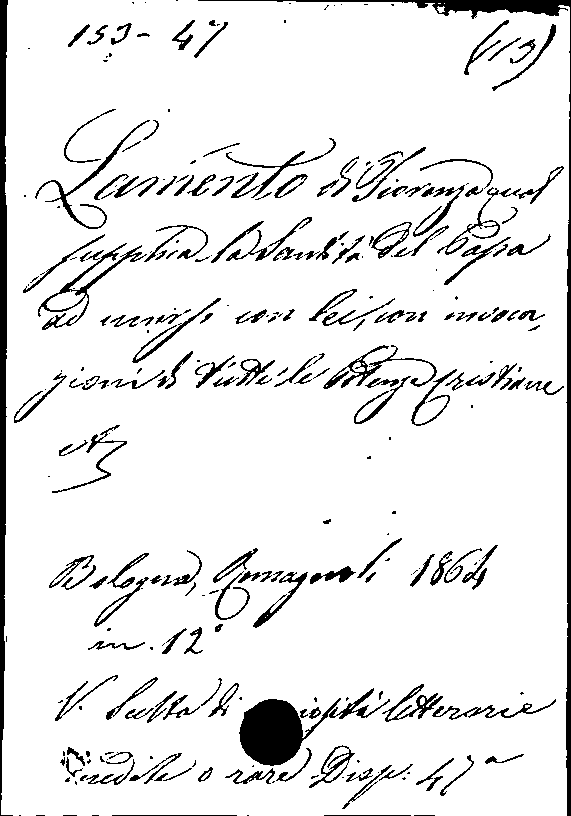 153-47 (113)
Lamento di Fiorenza qual
supplica la Santità del Papa
ad unirsi con lei, con invoca,
zioni di tutte le Potenze Cristiane
etc
Bologna, Romagnoli 1864
in. 12°
V. Scelta di curiosità letterarie
inedite o rare Disp: 47ª